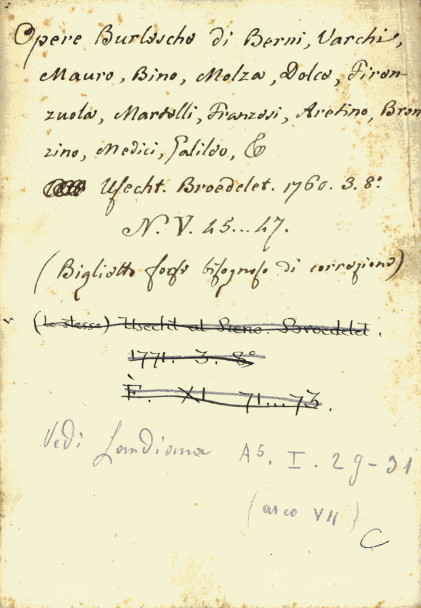 Opere Burlesche di Berni, Varchi,
Mauro, Bino, Molza, Dolce, Firen-
zuola, Martelli, Franzesi, Aretino, Bron
zino, Medici, Galileo, &
Usecht. Broedelet. 1760. 3. 8º
N. V. 45...47.
(Biglietto forse bisognoso di correzione)
(le stesse) Usecht al Reno. Broedelet.
1771. 3. 8º
E. XI. 71...73.
Vedi Landiana A5. I. 29-31
(arco VII)
C